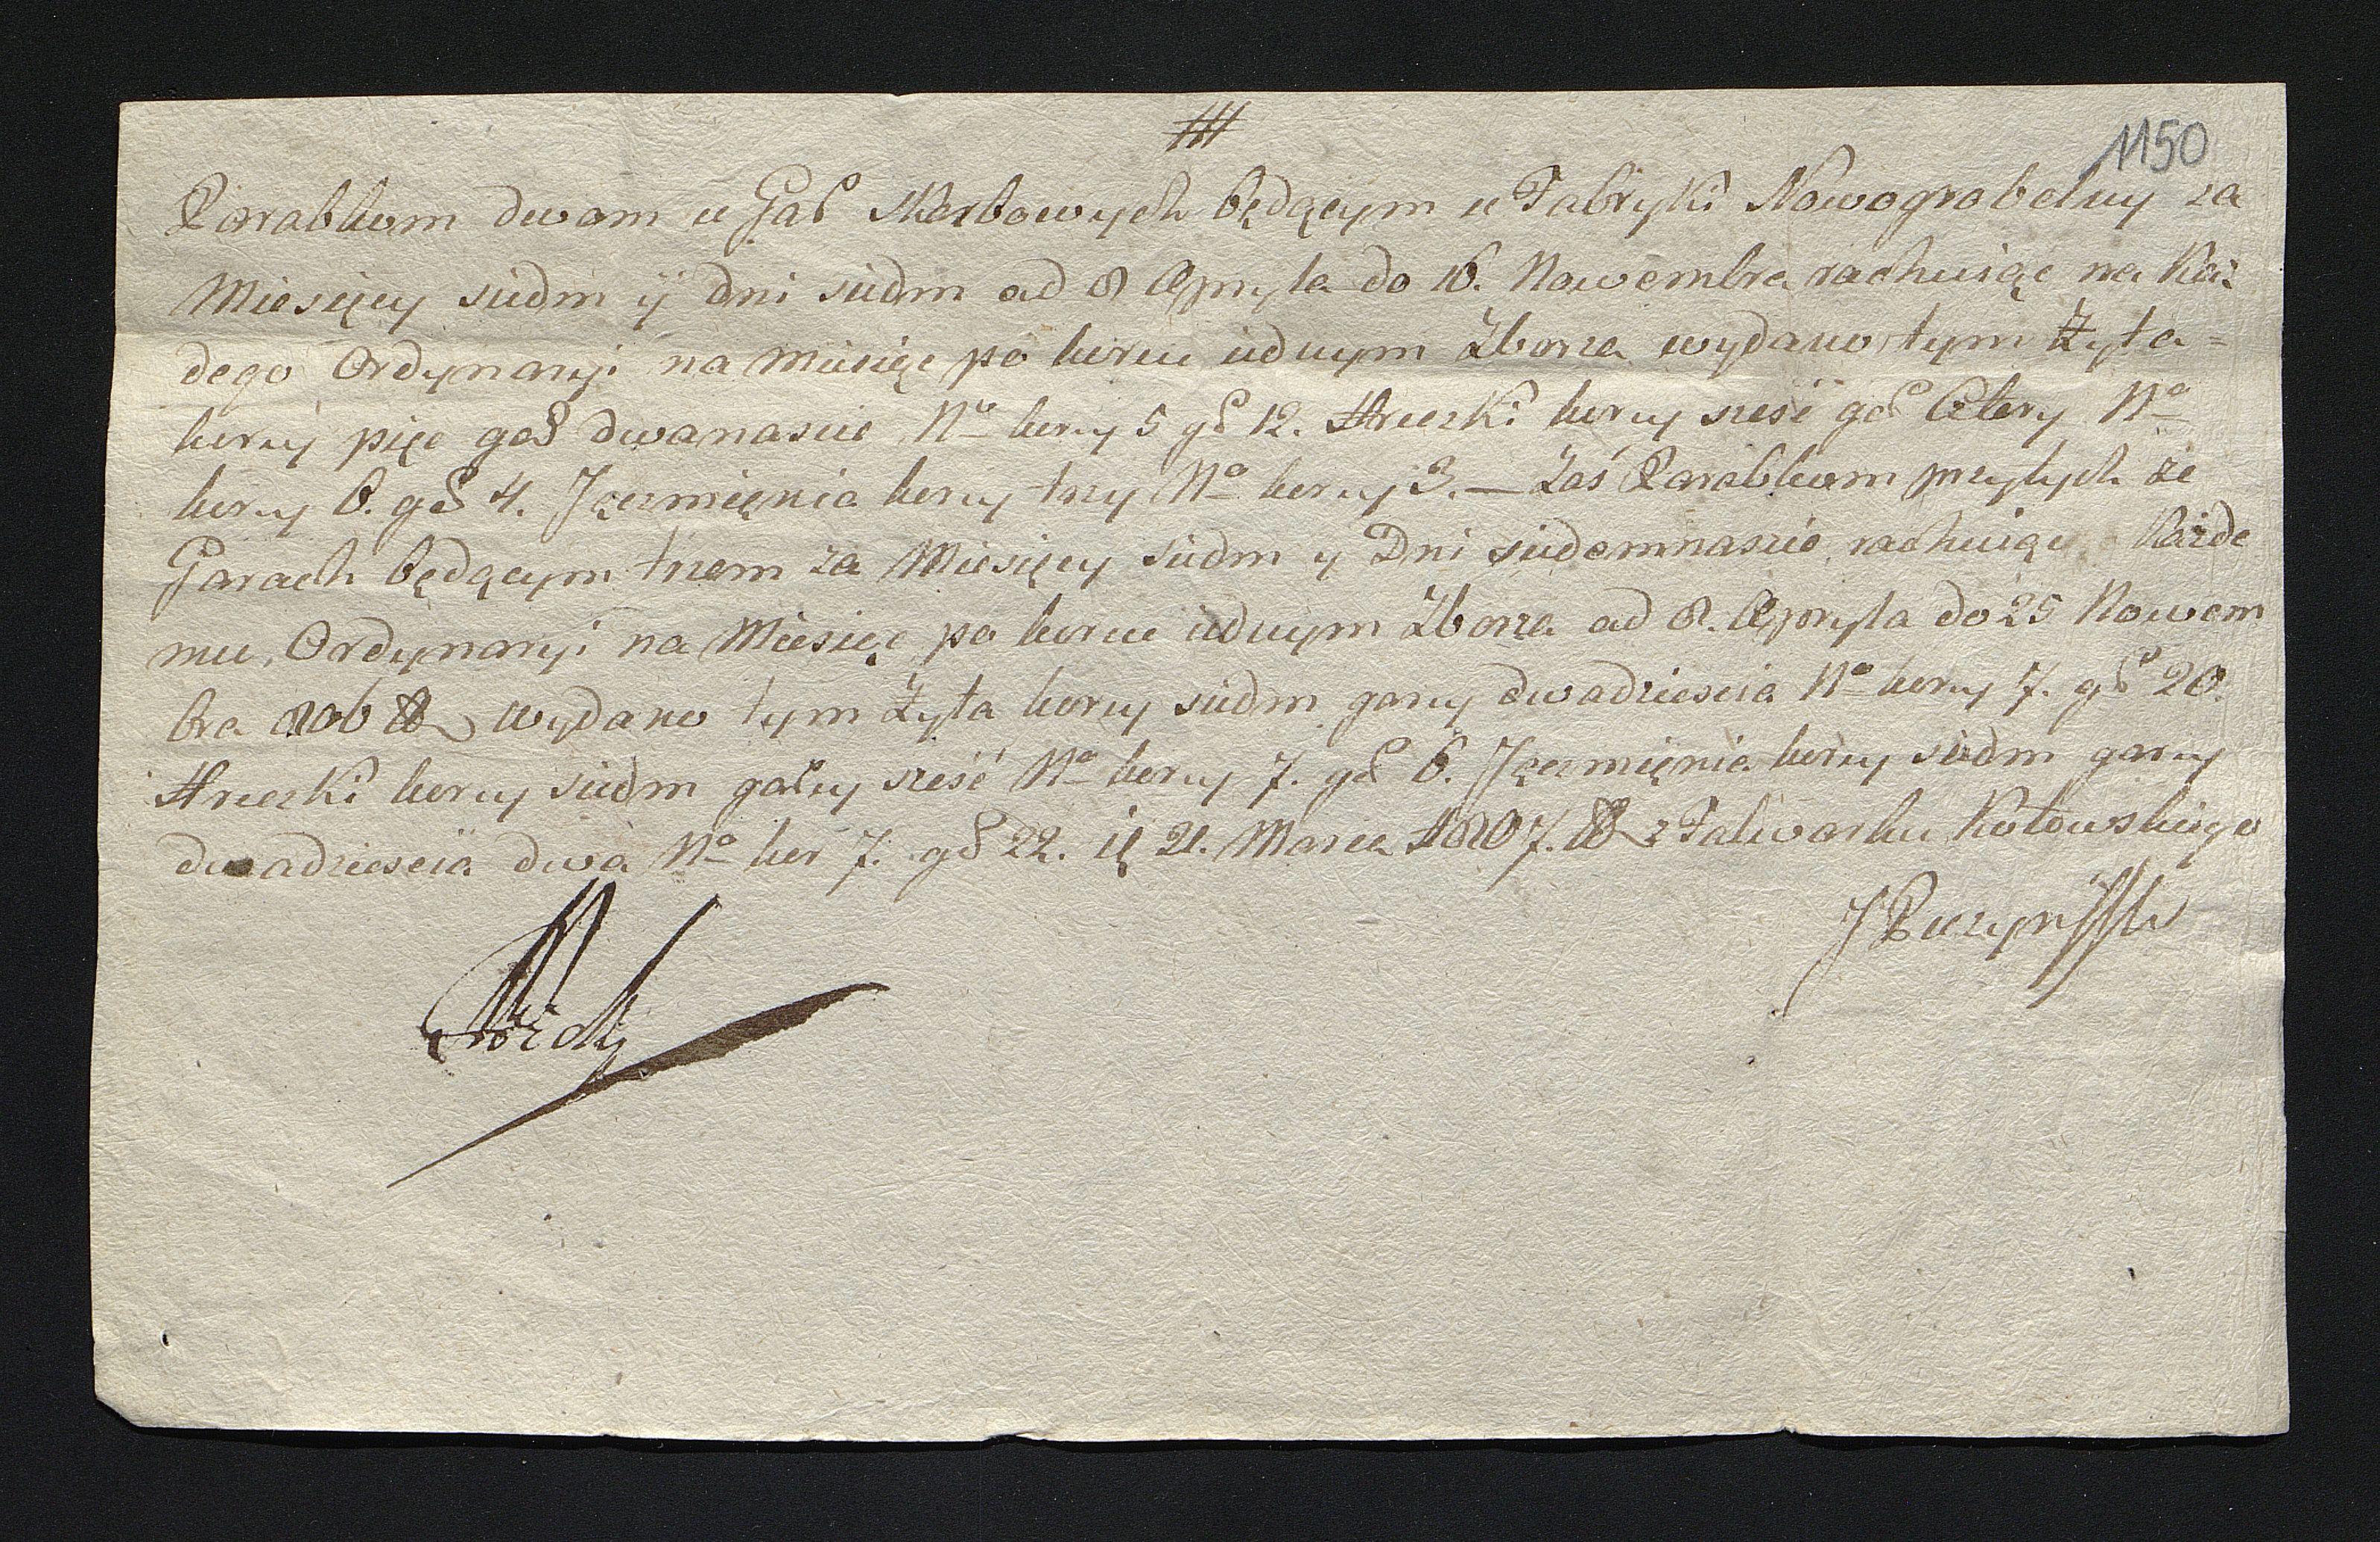 1150
Parabkom dwom u Gar Skarbowych będącym u Fabryki Nowogrobelny za
Miesięcy siedm y dni siedm od 8 Apryla do 16. Nowembra rachuiąc na Każ
dego Ordynaryi na miesięc po korcu iednym Zborza wydano tym Żyta =
korcy pięc gar dwanascie No korcy 5 gar 12. Hreczki korcy sześć gar Cztery No
korcy 6. gar 4. Jęczmięnia korcy trzy No korcy 3. — Zaś Parabkom przytych że
Garach będącym trzem za Miesięcy siedm y Dni siedemnascie rachuiąc Każde
mu, Ordynaryi na Miesięc po korcu iednym Zborza od 8. Apryla do 25 Nowem
bra 806 wydano tym Żyta korcy siedm garcy dwadziescia No korcy 7. gar 20.
Hreczki korcy siedm garcy sześć No korcy 7. gar 6. Jęczmięnia korcy siedm garcy
dwadziescia dwa No kor 7. gar 22. 21. Marca 1807. z Falwarku Kołowskiego